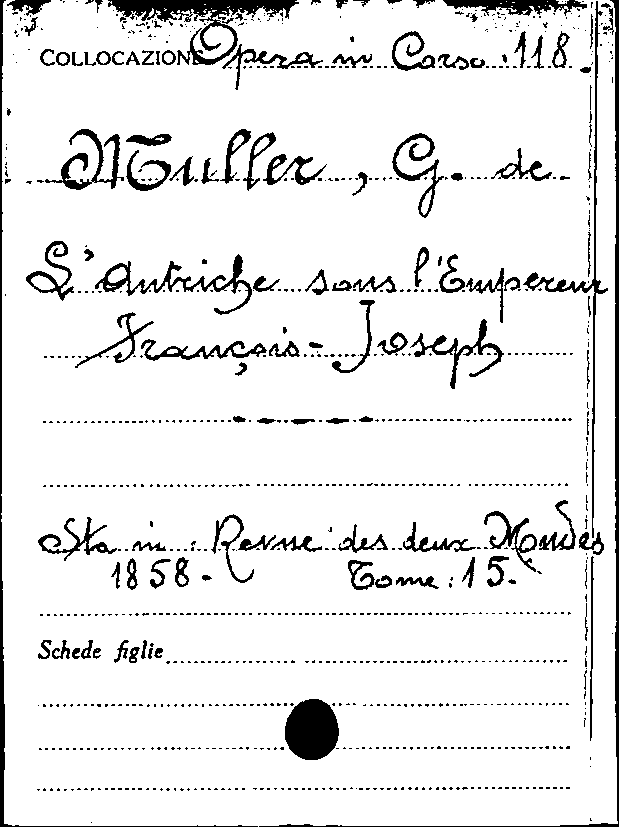 COLLOCAZIONE Opera in Corso . 118.
Muller, G. de
L'Autriche sous l'Empereur
François-Joseph
Sta in : Revue des deux Mondes
1858. Tome : 15.
Schede figlie